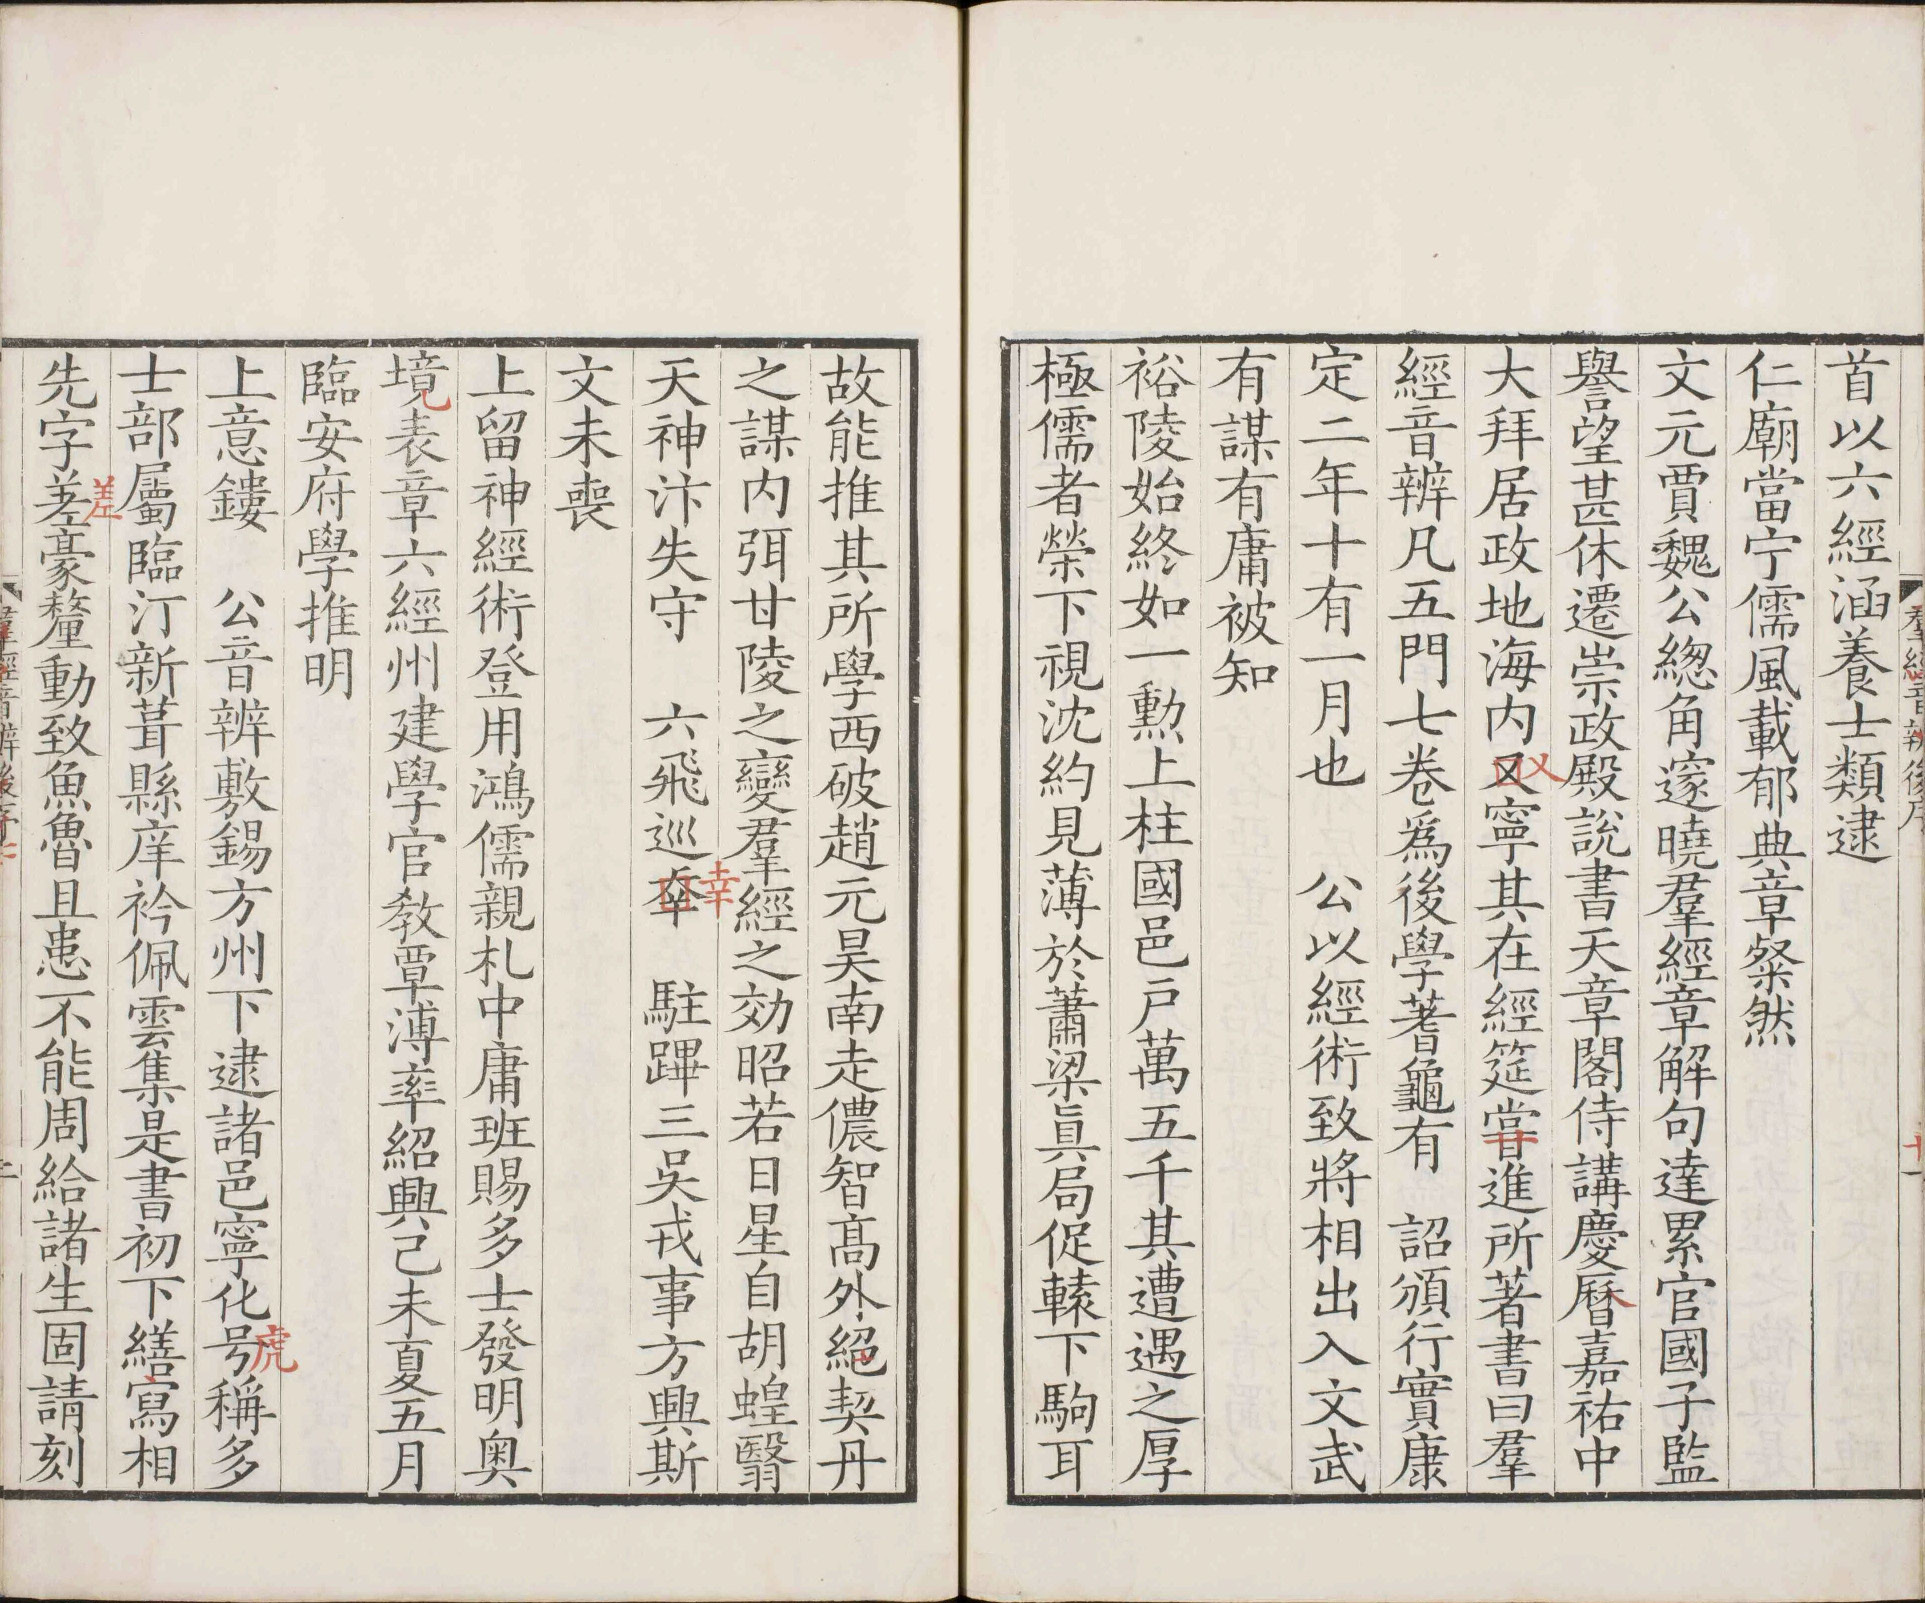 首以六經涵養士類逮
仁廟當宁儒風載郁典章粲然
文元賈魏公緫角邃曉羣經章解句達累官國子監
譽望甚休遷崇政殿說書天章閣侍講慶曆嘉祐中
大拜居政地海内又寧其在經筵嘗進所著書曰羣
經音辨凡五門七卷爲後學蓍龜有　詔頒行實康
定二年十有一月也　公以經術致將相出入文武
有謀有庸被知
裕陵始終如一勳上柱國邑戸萬五千其遭遇之厚
極儒者榮下視沈約見薄於蕭梁真局促轅下駒耳
故能推其所學西破趙元昊南走儂智髙外絕契丹
之謀内弭甘陵之變羣經之効昭若日星自胡蝗翳
天神汴失守　六飛巡幸　駐蹕三吳戎事方興斯
幸
文未喪
上留神經術登用鴻儒親札中庸班賜多士發明奥
境表章六經州建學官敎覃溥率紹興己未夏五月
臨安府學推明
上意鏤　公音辨敷錫方州下逮諸邑寧化号稱多
虎
士部屬臨汀新葺縣庠衿佩雲集是書初下繕寫相
先字差豪釐動致魚魯且患不能周給諸生固請刻
差
羣經音辨後序